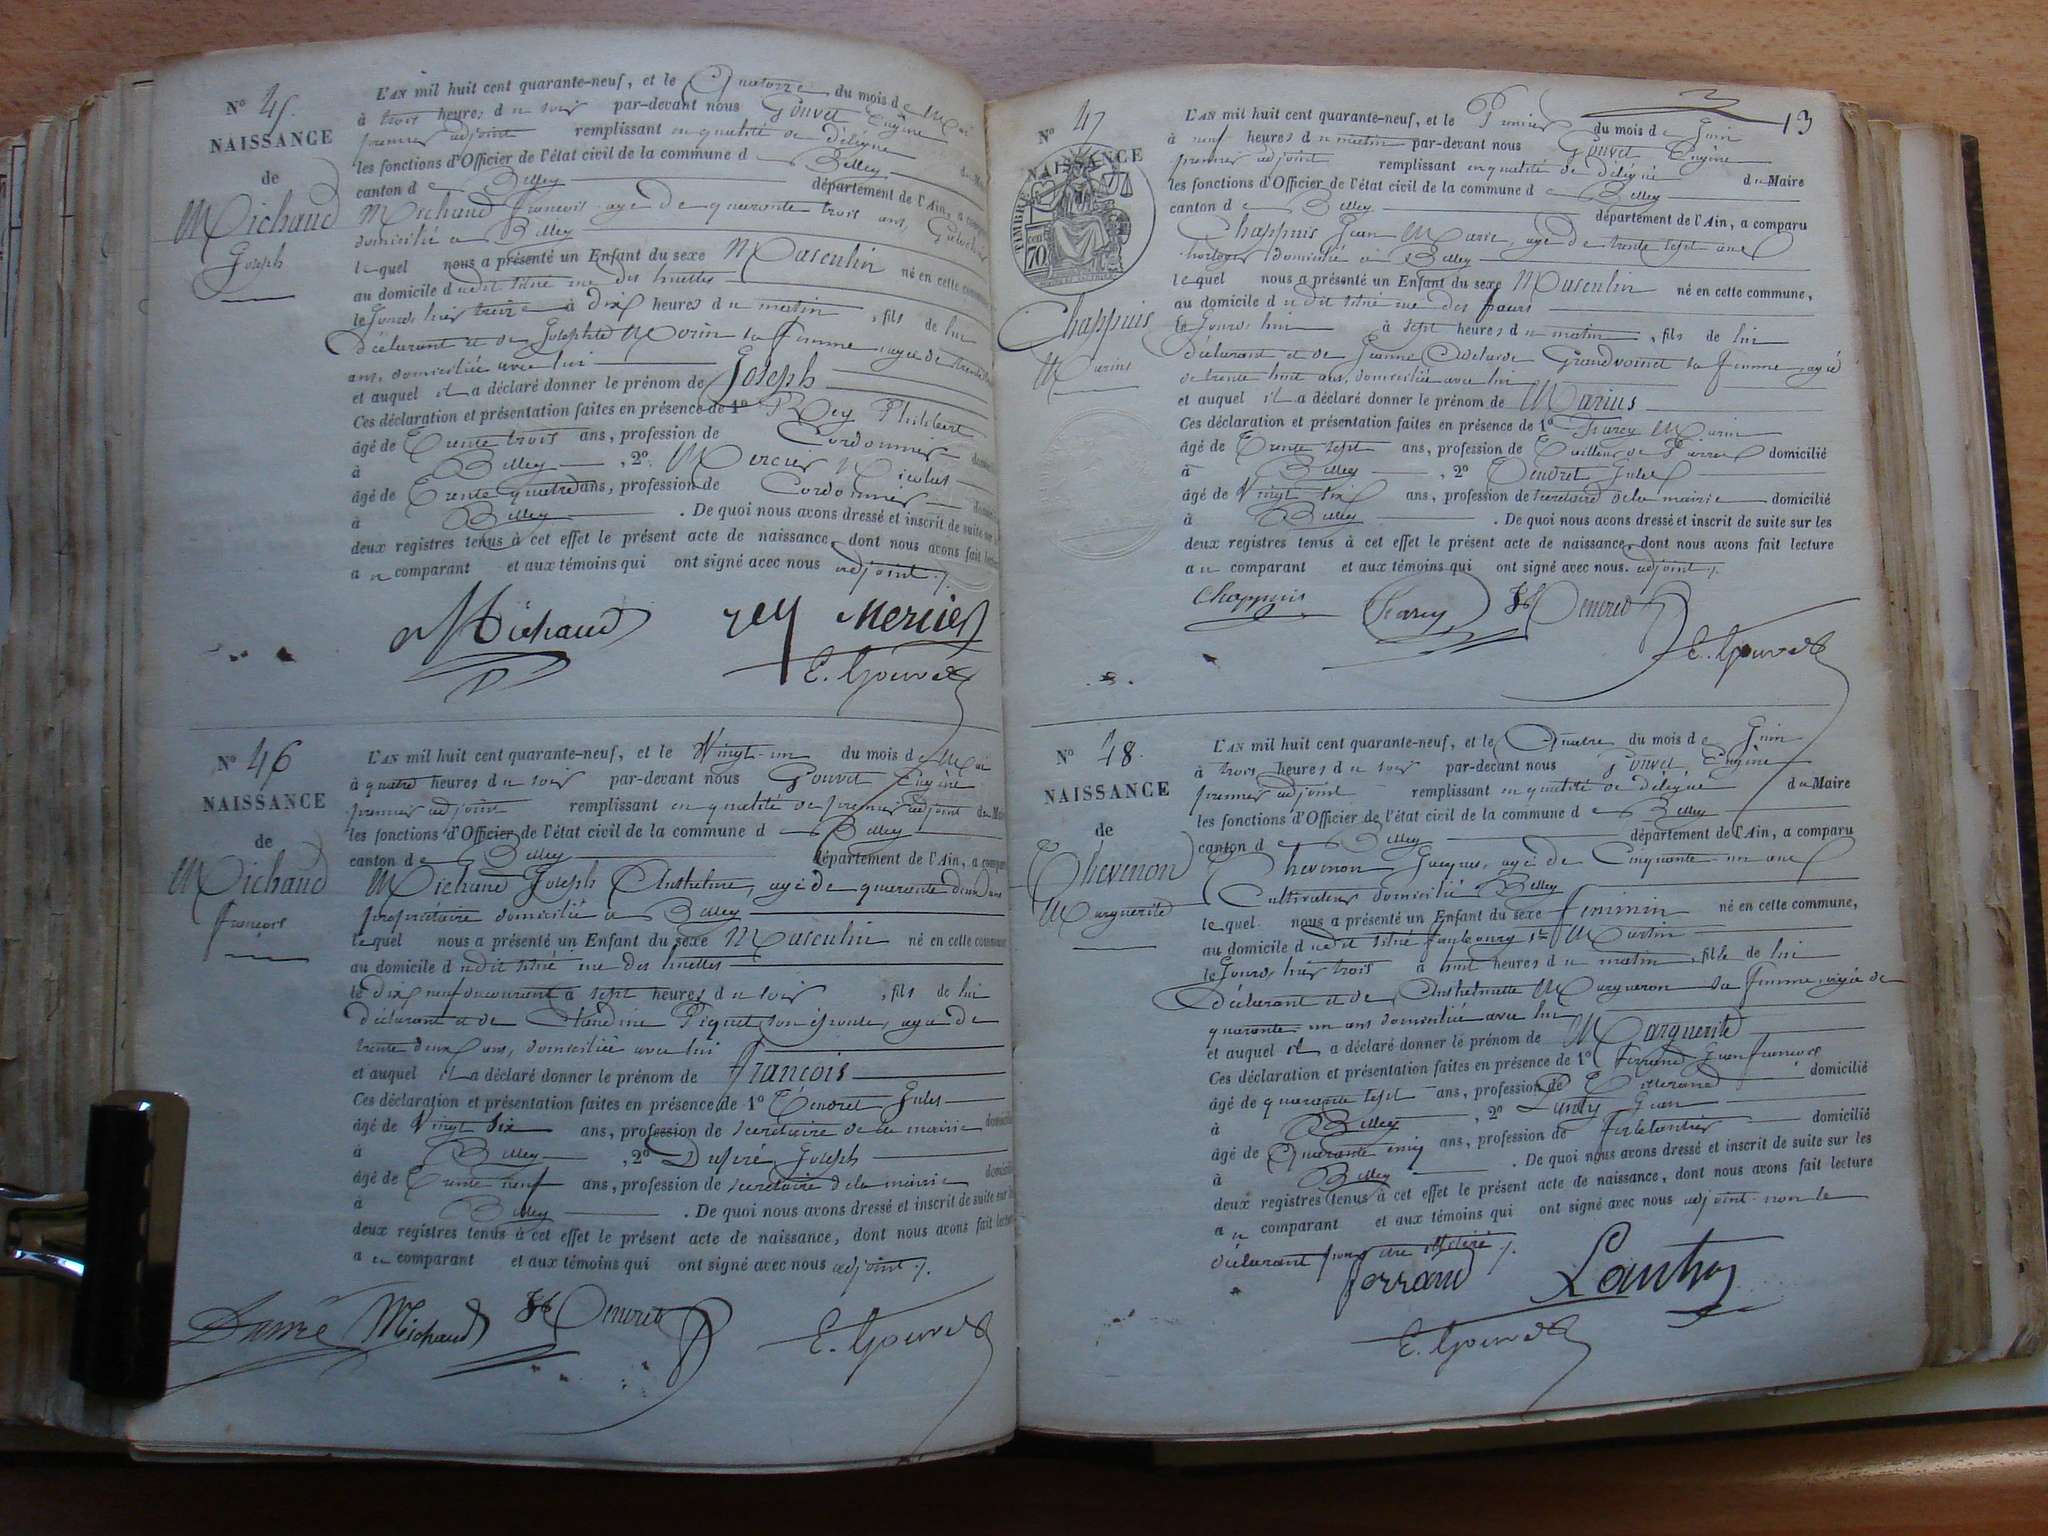 N° 45.
NAISSANCE
de
Michaud
Joseph
L'AN mil huit cent quarante-neuf, et le Quatorze du mois de Mai
à trois heures du soir par-devant nous Gouvet Eugène
premier adjoint remplissant en qualité de délégué
les fonctions d'Officier de l'état civil de la commune de Belley du Mai
canton de Belley département de l'Ain, a compa
Michaud françois agé de quarante trois ans,
domicilié à Belley
lequel nous a présenté un Enfant du sexe Masculin né en cette commune
au domicile dudit situé rue des
le Jourd hier treize à dix heures du matin, fils de lui
déclarant et de Josephte Morin sa femme agée de trente
ans, domiciliée avec lui
et auquel il a déclaré donner le prénom de Joseph
Ces déclaration et présentation faites en présence de 1° Rey Philibert
âgé de Trente trois ans, profession de Cordonnier domi
à Belley, 2° Mercier Nicolas
âgé de Trente quatre ans, profession de Cordonnier domi
à Belley. De quoi nous avons dressé et inscrit de suite sur
deux registres tenus à cet effet le présent acte de naissance, dont nous avons fait lect
au comparant et aux témoins qui ont signé avec nous adjoint ./.
Michaud rey Mercier
E. Gouvet
N° 46
NAISSANCE
de
Michaud
françois
L'AN mil huit cent quarante-neuf, et le Vingt-un du mois de Mai
à quatre heures du soir par-devant nous Gouvet Eugène
premier adjoint remplissant en qualité de premier adjoint du Mai
les fonctions d'Officier de l'état civil de la commune de Belley
canton de Belley département de l'Ain, a compar
Michaud Joseph Anthelme, agé de quarante deux ans
propriétaire domicilié à Belley
lequel nous a présenté un Enfant du sexe Masculin né en cette commune
au domicile dudit situé rue des
le dix neuf du courant à sept heures du soir, fils de lui
déclarant et de Claudine Piquet son épouse, agée de
trente deux ans, domiciliée avec lui
et auquel il a déclaré donner le prénom de françois
Ces déclaration et présentation faites en présence de 1° Tendret Jules
âgé de Vingt six ans, profession de secrétaire de la mairie domicilié
à Belley, 2° Dupré Joseph
âgé de Trente neuf ans, profession de secrétaire de la mairie domicilié
à Belley. De quoi nous avons dressé et inscrit de suite sur
deux registres tenus à cet effet le présent acte de naissance, dont nous avons fait lecture
au comparant et aux témoins qui ont signé avec nous adjoint ./.
Michaud Tendret E. Gouvet
13
N° 47
NAISSANCE
TIMBRE
70
Chappuis
Marius
L'AN mil huit cent quarante-neuf, et le Premier du mois de Juin
à neuf heures du matin par-devant nous Gouvet Eugène
premier adjoint remplissant en qualité de délégué du Maire
les fonctions d'Officier de l'état civil de la commune de Belley
canton de Belley département de l'Ain, a comparu
Chappuis Jean Marie, agé de trente sept ans
horloger domicilié à Belley
lequel nous a présenté un Enfant du sexe Masculin né en cette commune,
au domicile dudit situé rue des fours
le Jourd hui à sept heures du matin, fils de lui
déclarant et de Jeanne Adelaide Grandvoinet sa femme, agée
de trente huit ans, domiciliée avec lui
et auquel il a déclaré donner le prénom de Marius
Ces déclaration et présentation faites en présence de 1° Marin
âgé de Trente sept ans, profession de Tailleur de Pierres domicilié
à Belley, 2° Tendret Jules
âgé de Vingt six ans, profession de secretaire de la mairie domicilié
à Belley. De quoi nous avons dressé et inscrit de suite sur les
deux registres tenus à cet effet le présent acte de naissance, dont nous avons fait lecture
au comparant et aux témoins qui ont signé avec nous. adjoint ./.
Chappuis Tendret
E. Gouvet
N° 48.
NAISSANCE
de
Thevenon
Marguerite
L'AN mil huit cent quarante-neuf, et le Quatre du mois de Juin
à trois heures du soir par-devant nous Gouvet Eugène
premier adjoint remplissant en qualité de délégué du Maire
les fonctions d'Officier de l'état civil de la commune de Belley
canton de Belley département de l'Ain, a comparu
Thevenon Jacques, agé de Cinquante un ans
Cultivateur domicilié Belley
lequel nous a présenté un Enfant du sexe féminin né en cette commune,
au domicile dudit situé faubourg St Martin
le Jourd hier trois à huit heures du matin, fille de lui
déclarant et de Anthelmette Margueron sa femme agée de
quarante un ans domiciliée avec lui
et auquel il a déclaré donner le prénom de Marguerite
Ces déclaration et présentation faites en présence de 1° ferrand Jean françois
âgé de quarante sept ans, profession de Tisserand domicilié
à Belley, 2° Jean
âgé de Quarante cinq ans, profession de ferblantier domicilié
à Belley. De quoi nous avons dressé et inscrit de suite sur les
deux registres tenus à cet effet le présent acte de naissance, dont nous avons fait lecture
au comparant et aux témoins qui ont signé avec nous adjoint non le
déclarant pour être illitéré ./.
ferrand
E. Gouvet